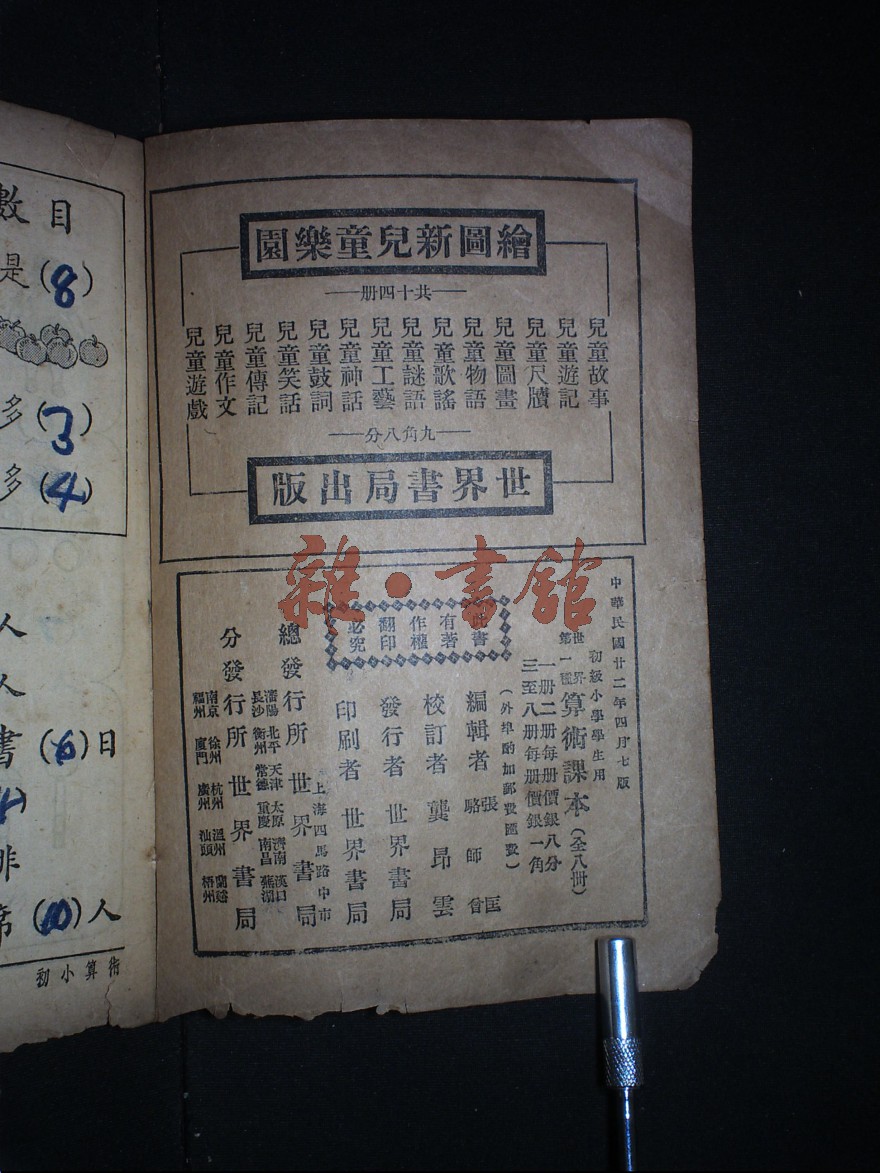 繪圖新兒童樂園
共十四册
兒童故事
兒童遊記
兒童尺牘
兒童圖畫
兒童物語
兒童歌謠
兒童謎語
兒童工藝
兒童神話
兒童鼓詞
兒童笑話
兒童傳記
兒童作文
兒童遊戲
九角八分
世界書局出版
中華民國廿二年四月七版
初級小學學生用
世界第一種
算術課本(全八册)
一册二册每册價銀八分
三至八册每册價銀一角
(外埠酌加郵費匯費)
此書
有著
作權
翻印
必究
編輯者 張匡
駱師曾
校訂者 龔昂雲
發行者 世界書局
印刷者 世界書局
上海四馬路中市
總發行所 世界書局
瀋陽 北平 天津 太原 濟南 漢口
長沙 衡州 常德 重慶 南昌 蕪湖
分發行所 世界書局
南京 徐州 杭州 溫州 蘭谿
福州 廈門 廣州 汕頭 梧州
雜·書館
數目
是(8)
多(3)
多(4)
人
人
書(9)日
排
席(10)人
初小算術